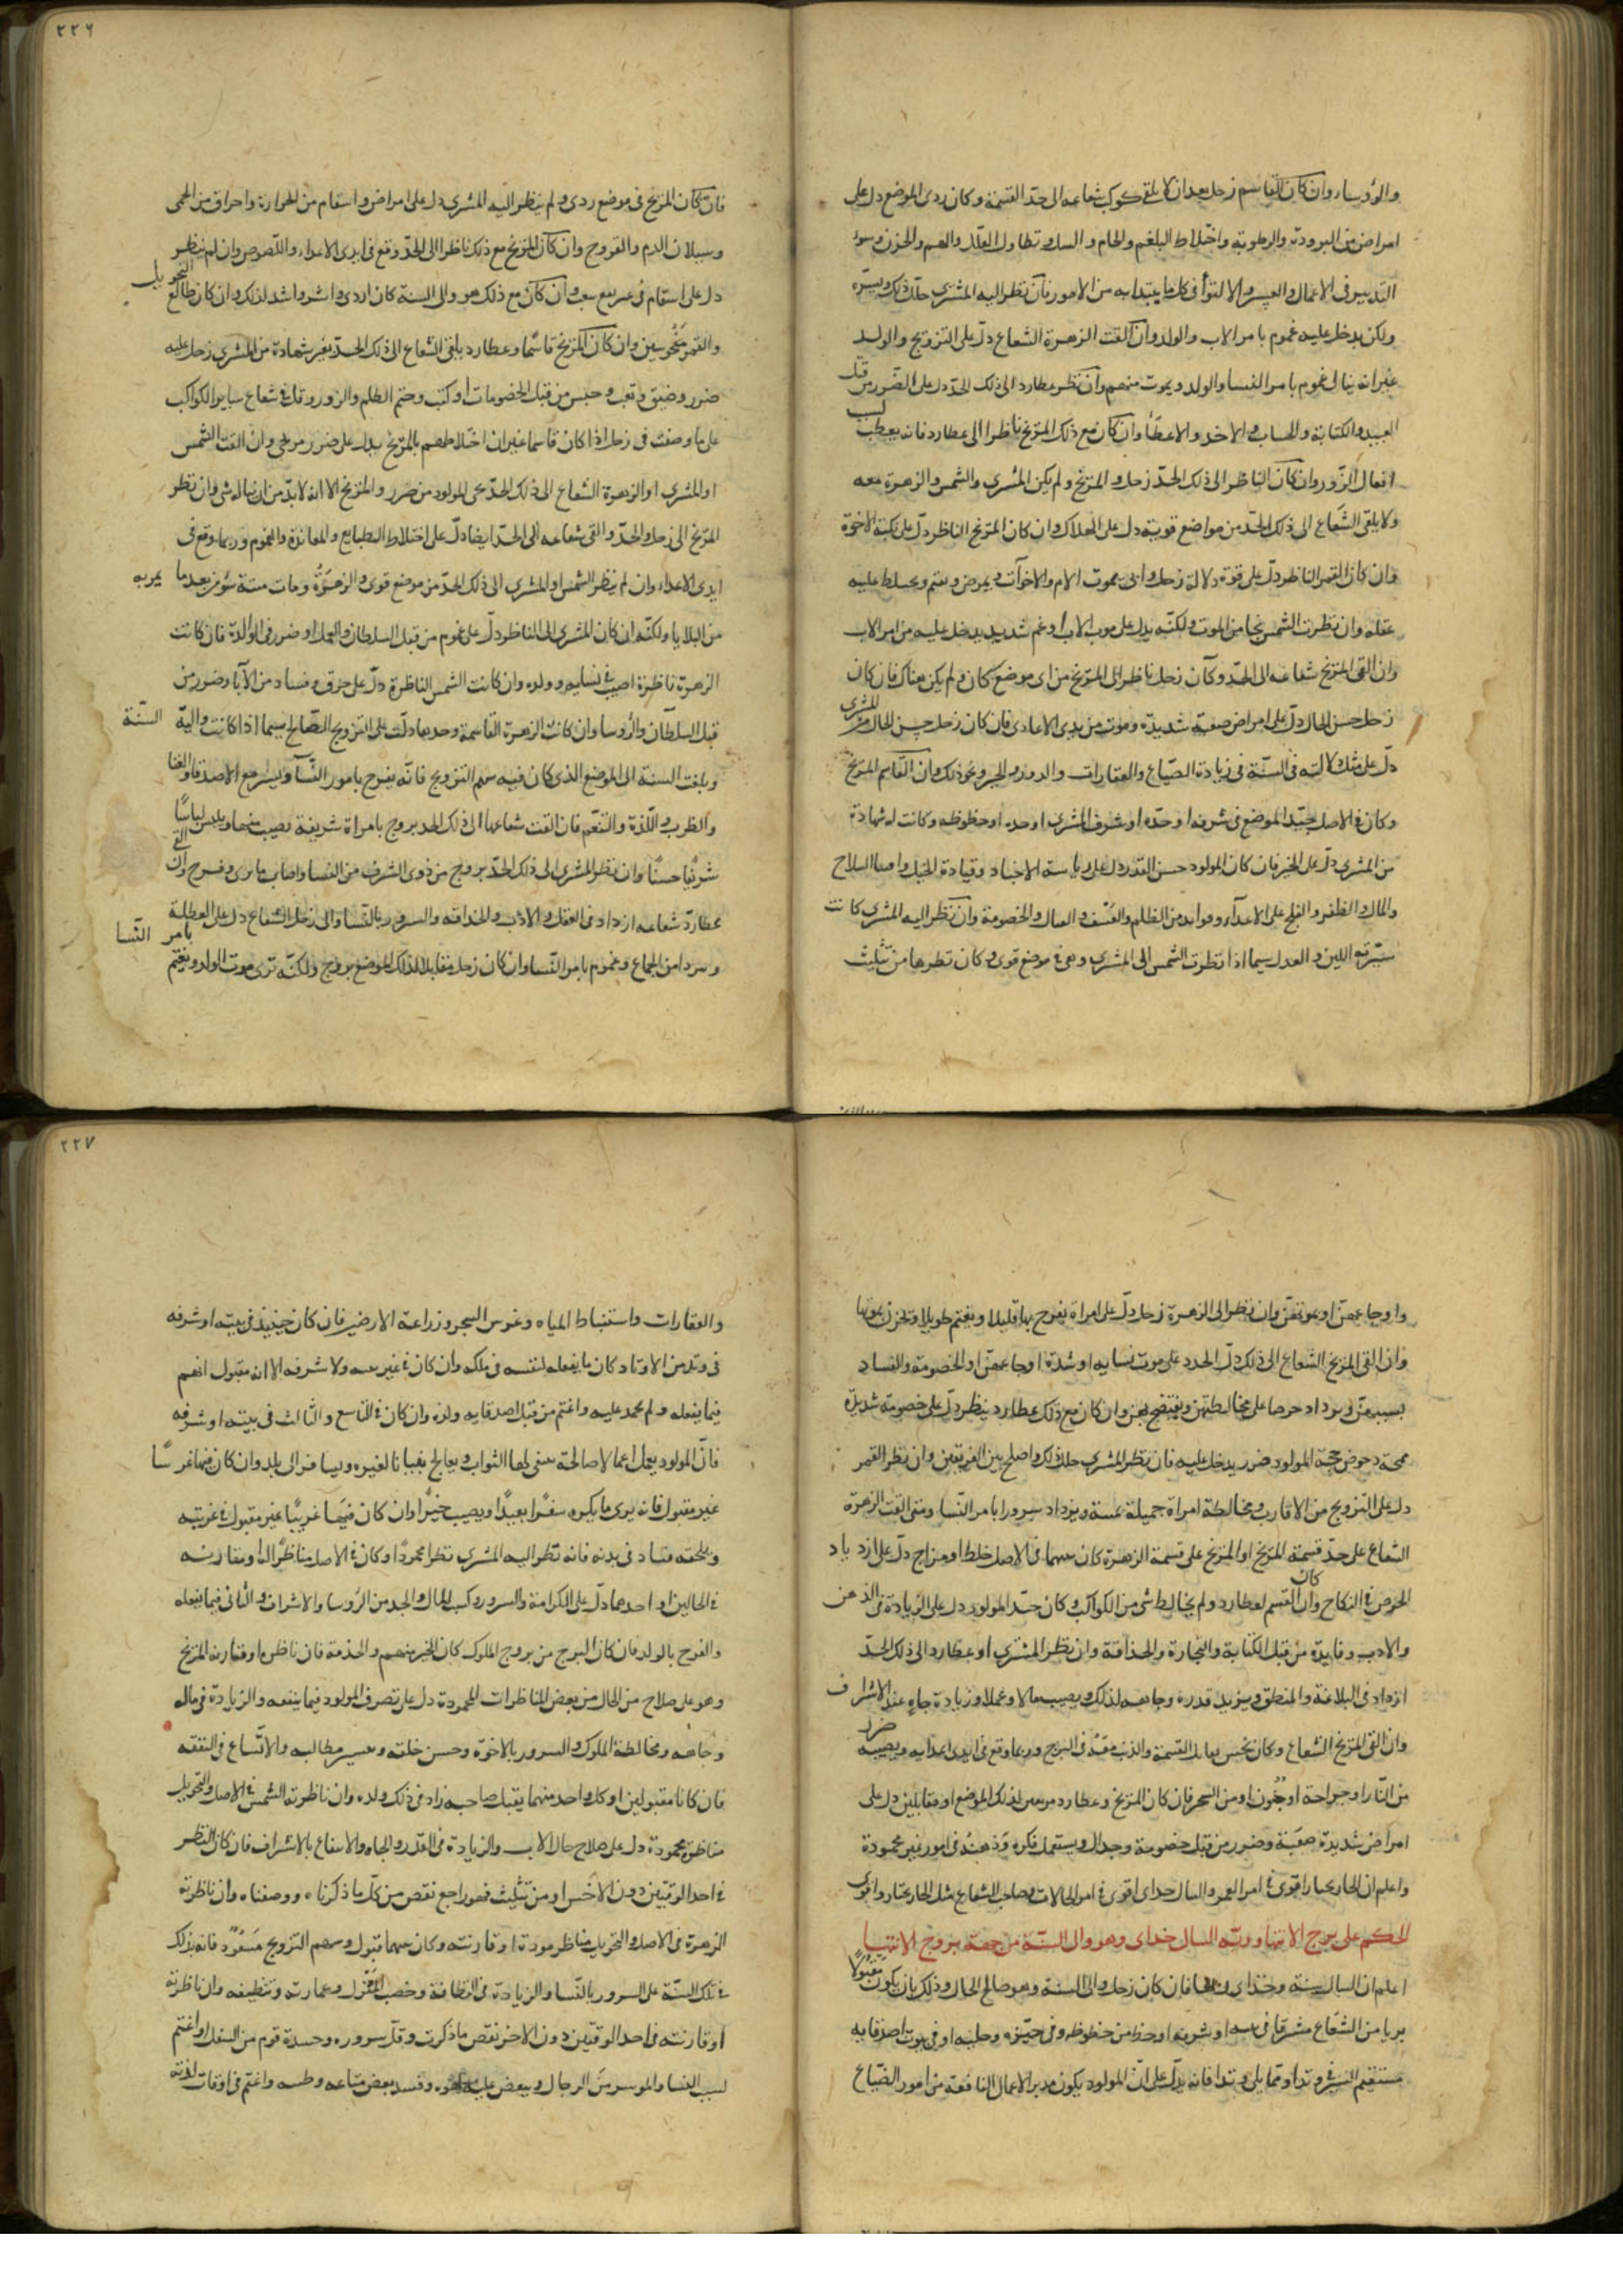 والرؤساء وان كان القاسم زحل بعد ان لا يلقى كوكب شعاعه الى حد القسمة وكان ردى الموضع دل على
امراض من البرودة والرطوبة واختلاط البلغم والخام والسل وتطاول العلل والهم والحزن وسوء
التدبير فى الاعمال والعسر والالتوا فى كل ما يبتدا به من الامور فان نظر اليه المشترى حلل ذلك ويسره
ولكن يدخل عليه غموم بامر الاب والولد وان القت الزهرة الشعاع دل على التزويج والولد
غير انه ينال غموم بامر النسا والولد ويموت منهم وان نظر عطارد الى ذلك الحد دل على الضرر من قبل
العبيد والكتابة والحساب والاخذ والاعطا وان كان مع ذلك المريخ ناظرا الى عطارد فانه يعطب لسبب
افعال الزور وان كان الناظر الى ذلك الحد زحل والمريخ ولم يكن المشترى والشمس والزهرة معه
ولا يلقى الشعاع الى ذلك الحد من مواضع قوية دل على الهلاك وان كان المريخ الناظر دل على نكبة الاخوة
وان كان القمر الناظر دل على قوة دلالة زحل وانه بموت الام والاخوات ويمرض ويغتم ويختلط عليه
عقله وان نظرت الشمس نجا من الموت ولكنه يدل على موت الاب او غم شديد يدخل عليه من امر الاب
وان القى المريخ شعاعه الى الحد وكان زحل ناظر الى المريخ من اى موضع كان ولم يكن هناك فان كان
زحل حسن الحال دل على امراض صعبة شديدة وموت من يدى الاعادى فان كان زحل حسن الحال من المشترى
دل على مثل دلالته فى السنة فى زيادة الضياع والعقارات والدور والخير ونحو ذلك وان القاسم المريخ
وكان فى الاصل جيد الموضع فى شرفه او حده او شرف المشترى او حده او حظوظه وكانت له شهادة
من المشترى دل على الخير فان كان المولود حسن القدر دل على رياسة الاجناد وقيادة الخيل واصحاب السلاح
والمال والظفر والفلج على الاعداء وفوايد من الظلم والعسف والقتال والخصومة وان نظر اليه المشترى كانت
سيرته اللين والعدل سيما اذا نظرت الشمس الى المشترى وهى فى موضع قوى وكان نظرها من تثليث
٢٢٦
فان كان المريخ فى موضع ردى ولم ينظر اليه المشترى دل على امراض واسقام من الحرارة واحراق من الحمى
وسيلان الدم والقروح وان كان المريخ مع ذلك ناظرا الى الحد وقع فى ايدى الاعداء واللصوص وان لم ينظر
دل على اسقام فى سريع وان كان مع ذلك هو والى السنة كان اردى واشر واشد لذلك وان كان طالع التحويل
والقمر منحوسين وان كان المريخ قاسما وعطارد يلقى الشعاع الى ذلك الحد بغير شهادة من المشترى زحل عليه
ضرر وضيق وتعب وحبس من قبل الخصومات او كتب وختم الظلم والزور وقل فى شعاع ساير الكواكب
على ما وصفت فى زحل اذا كان قاسما غير ان اختلاطهم بالمريخ يدل على ضرر مريخى وان القت الشمس
او المشترى او الزهرة الشعاع الى ذلك الحد نجى المولود من ضرر والمريخ الا انه لا بد من ان يناله شى وان نظر
المريخ الى زحل والحد والقى شعاعه الى الحد ايضا دل على اختلاط الطبايع والمعاندة والهموم وربما وقع فى
ايدى الاعداء وان لم ينظر الشمس او المشترى الى ذلك الحد من موضع قوى والزهرة ومات ميتة سوء من بعد ما يمر به
من البلايا ولكنه ان كان المشترى الى الناظر دل على غموم من قبل السلطان والعمل او ضرر فى الوالدة فان كانت
الزهرة ناظرة اصيب فى نسايه وولده وان كانت الشمس الناظرة دل على حرق وفساد من الآباء وضرر من
قبل السلطان والرؤسا وان كانت الزهرة القاسمة وحدها دلت على التزويج الصالح لا سيما اذا كانت والية السنة
وبلغت السنة الى الموضع الذى كان فيه سهم التزويج فانه يفرح بامور النساء ويسر مع الاصدقاء والغنا
والطرب واللذة والتنعم فان القت شعاعها الى ذلك الحد بروج بامراة شريفة يصيب منها ويلبس لباسًا
شريفا حسنا وان نظر المشترى الى ذلك الحد بروج من ذوى الشرف من النسا واصاب ما يرى وفرح وان القى
عطارد شعاعه ازداد فى العقل والادب والحذاقه والسرور بالنسا والى زحل الشعاع دل على العطلة
وبرد امن الجماع وغموم بامر النسا وان كان زحل مقابلا لذلك الموضع بروج ولكنه ترى موت الولد ويغتم بامر النسا
واوجاعهن او بموتهن وان نظر الى الزهرة زحل دل على امراة يفرح بها قليلا ويغتم طويلا وتحزن بموتها
وان القى المريخ الشعاع الى ذلك دل الحدد على موت نسايه او شدة اوجاعهن او الخصومة والفساد
بسببهن ويزداد حرصا على مخالطتهن ويفتضح بهن وان كان مع ذلك عطارد ينظر دل على خصومة شديدة
المولود ضرر يدخل عليه فان نظر المشترى حلل ذلك واصلح بين الفريقين وان نظر القمر
دل على التزويج من الاقارب ومخالطة امراة جميلة ويزداد سرورا بامر النسا ومتى القت الزهرة
الشعاع على حد قسمة المريخ او المريخ على قسمة الزهرة كان بينهما فى الاصل خلط او مزاج دل على ازدياد
الحرص فى النكاح وان كان القسم لعطارد ولم يخالطه شى من الكواكب وكان جيد المولود دل على الزيادة فى الذهن
والادب وفايدة من قبل الكتابة والتجارة والحذاقة وان نظر المشترى او عطارد الى ذلك الحد
ازداد فى البلاغة والمنطق ويزيد قدره وجاهه لذلك ويصيب مالا وعملا وزيادة جاه عند الاشراف
وان القى المريخ الشعاع وكان نحس القسمة والذنب معه فى البرج وربما وقع فى ايدى اعدايه ويصيبه ضرر
من النار او جراحة او جنون او من السحر فان كان المريخ وعطارد لذلك الموضع او مقابلين دل على
امراض شديدة صعبة وضرر من قبل خصومة وجدال ويستعمل فكره وذهنه فى امور غير محمودة
واعلم ان الجاربختار اقوى فى امر العمر والسال خداى اقوى فى امر الحالات وصاحب الشعاع مثل الجاربختار واقوى
الحكم على برج الانتها وربه السال خداى وهو والى السنة من جهة بروج الانتها
اعلم ان السال سنة وخداى فان كان زحل والى السنة وهو صالح الحال وذلك بان يكون مقبولًا
بريا من الشعاع مشرقا فى بيته او شرفه او حظ من حظوظه وفى حيزه وحلبه او فى بيوت اصدقايه
مستقيم السير فى وتد او مما يلى وتدا فانه يدل على ان المولود يكون مدبر الاعمال النافعة من امور الضياع
٢٢٧
والعقارات واستنباط المياه وغرس الشجر وزراعة الارضين فان كان حينيذ فى بيته او شرفه
فى وتد من الاوتاد كان ما يفعله لنفسه فى ملكه وان كان فى غير بيته ولا شرفه الا انه مقبول اتهم
فيما يفعله ولم يحمد عليه واغتم من قبل اصدقايه وولده وان كان فى التاسع والثالث فى بيته او شرفه
فان المولود يعمل اعمالا صالحة يبغى لها الثواب ويعالج بنيانا لغيره ويسافر الى بلد وان كان فيهما غرسًا
غير مقبول فانه يرى ما يكره سفرًا بعيدًا ويصيب خيرًا وان كان فيها غريبًا غير مقبول فى غربته
ويلحقه فساد فى بدنه فانه نظر اليه المشترى نظرا محمودًا وكان فى الاصل مناظرًا له او مقارنه
فى الحالين او احدهما دل على الكرامة والسرور وكسب المال والحمد من الرؤسا والاشراف والتانى فيما يفعله
والفرح بالولد فان كان البرج من بروج الملوك كان الخير منهم والخدمة فان ناظره او قارنه المريخ
وهو على صلاح من الحال من بعض المناظرات المحمودة دل على تصرف المولود فيما ينفعه والزيادة فى ماله
وجاهه ومخالطة الملوك والسرور بالاخوة وحسن خلقه وتيسير مطالبه والاتساع فى النفقه
فان كانا مقبولين او كل واحد منهما يقبل صاحبه زاد فى ذلك ولده وان ناظرته الشمس فى الاصل والتحويل
مناظرة محمودة دل على صلاح حال الاب والزيادة فى القدر والجاه والانتفاع بالاشراف فان كان النظر
فى احد الوقتين دون الآخر او من تثليث فهو راجع نقص من كل ما ذكرناه ووصفناه وان ناظرته
الزهرة فى الاصل والتحويل مناظر مودة او قارنته وكان بينهما قبول وسهم التزويج مسعود فانه يدل
فى تلك السنة على السرور بالنسا والزيادة فى النظافة وخصب المنزل وعمارته وتنظيفه وان ناظرته
او قارنته فى احد الوقتين دون الاخر نقص ما ذكرت وقل سروره وحسده قوم من السفل او اغتم
لسبب النسا والرجال وفسد بعض متاعه واغتم فى اوقات لذته